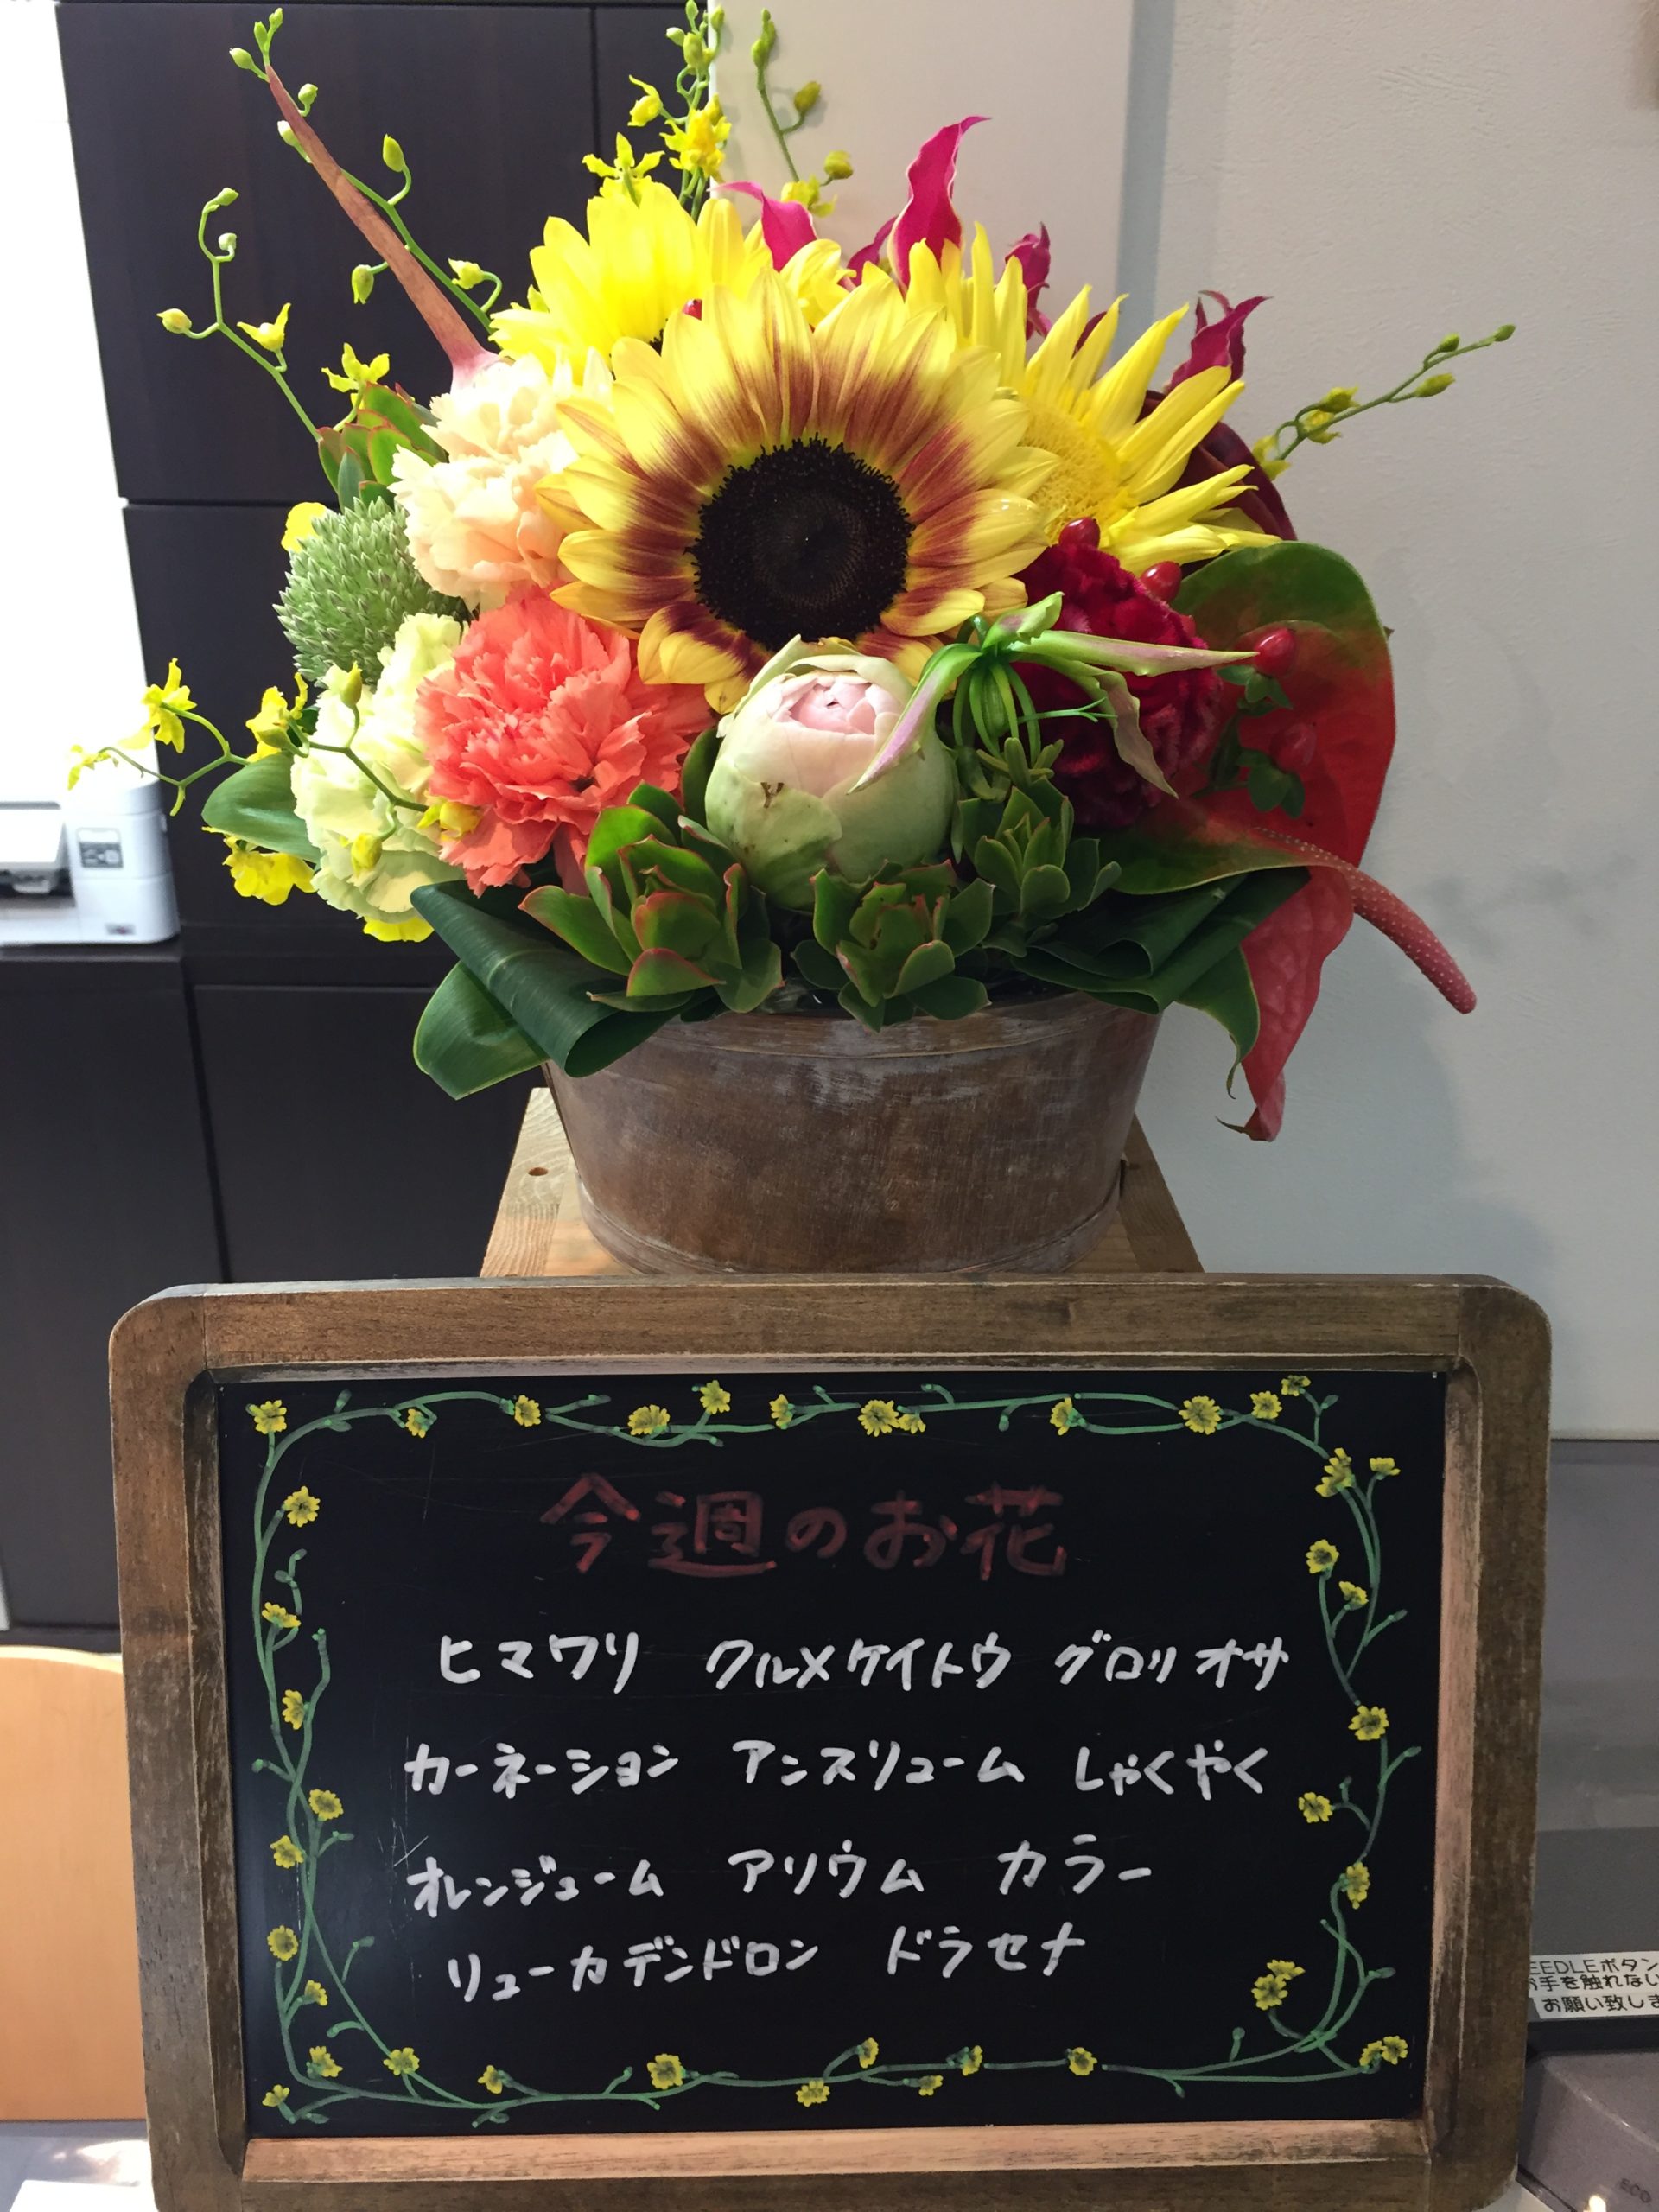 今週のお花
ヒマワリ クルメケイトウ グロリオサ
カーネーション アンスリューム しゃくやく
オレンジューム アリウム カラー
リューカデンドロン ドラセナ
EEDLEボタン
お手を触れない
お願い致しま
ECO